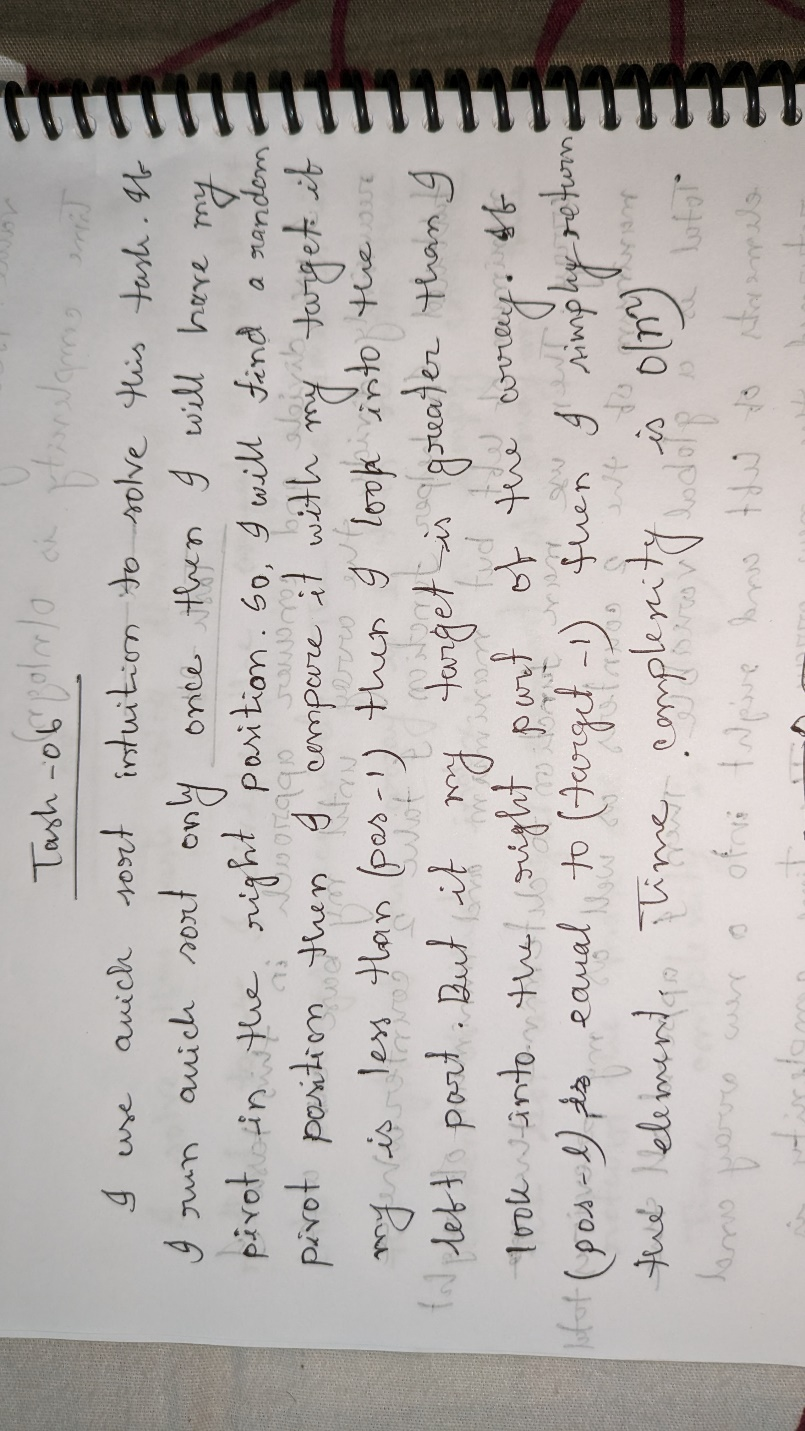 Task-06
I use quick sort intuition to solve this task. If
I run quick sort only once then I will have my
pivot in the right position. So, I will find a random
pivot position then I compare it with my target if
my is less than (pos-1) then I look into the
left part. But if my target is greater than I
look into the right part of the array. If
(pos-1) is equal to (target-1) then I simply return
the element. Time complexity is O(n²)